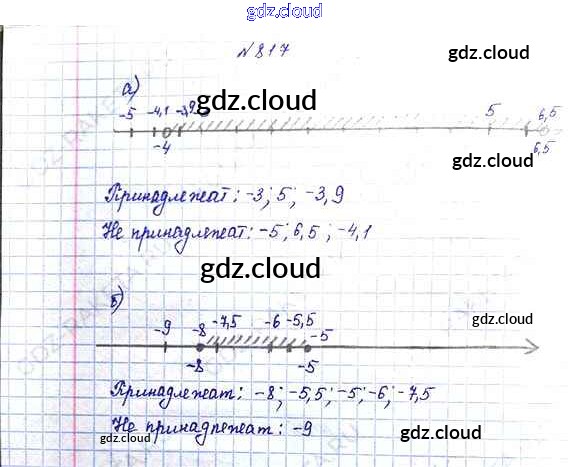 gdz.cloud
№817
gdz.cloud
а)
gdz.cloud
-5 -4,1 -3,9 5 6,5
-4 6,5
gdz.cloud
Принадлежат: -3; 5; -3,9
Не принадлежат: -5; 6,5; -4,1
gdz.cloud
б)
gdz.cloud
-9 -8 -7,5 -6 -5,5 -5
-8 -5
Принадлежат: -8; -5,5; -5; -6; -7,5
Не принадлежат: -9
gdz.cloud
gdz.cloud